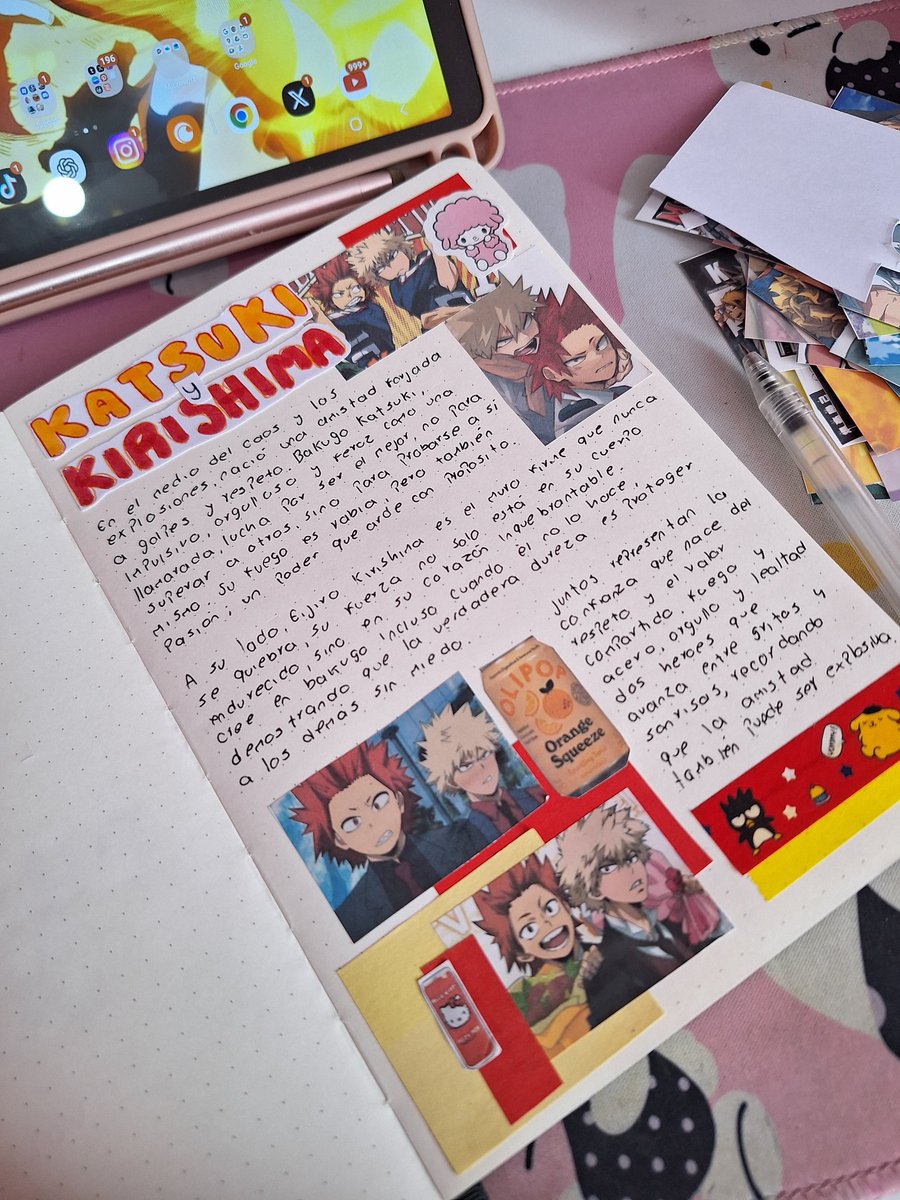 1
196
Google
1
1
1
999+
KATSUKI
y
KIRISHIMA
En el medio del caos y los
explosiones, nació una amistad forjada
a golpes y respeto. Bakugo Katsuki,
impulsivo, orgulloso y feroz como una
llamarada, lucha por ser el mejor, no para
superar a otros, sino para probarse a si
mismo. Su fuego es rabia, pero también
pasion; un poder que arde con proposito.
A su lado, Eijiro Kirishima es el muro firme que nunca
se quiebra, su fuerza no solo está en su cuerpo
endurecido, sino en su corazón inquebrantable.
Cree en bakugo incluso cuando él no lo hace,
demostrando que la verdadera dureza es proteger
a los demás sin miedo.
Juntos representan la
confianza que nace del
respeto y el valor
compartido, Fuego y
acero, orgullo y lealtad
dos heroes que
avanza entre gritos y
sonrisas, recordando
que la amistad
también puede ser explosiva
OLIPOP
Orange
Squeeze